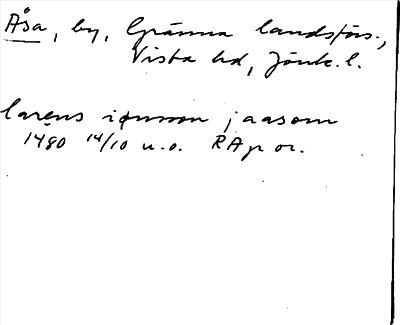 Åsa, by, Gränna landsförs.,
Vista hd, Jönk. l.
larens iønsson j aasom
1480 14/10 u.o. RAp or.